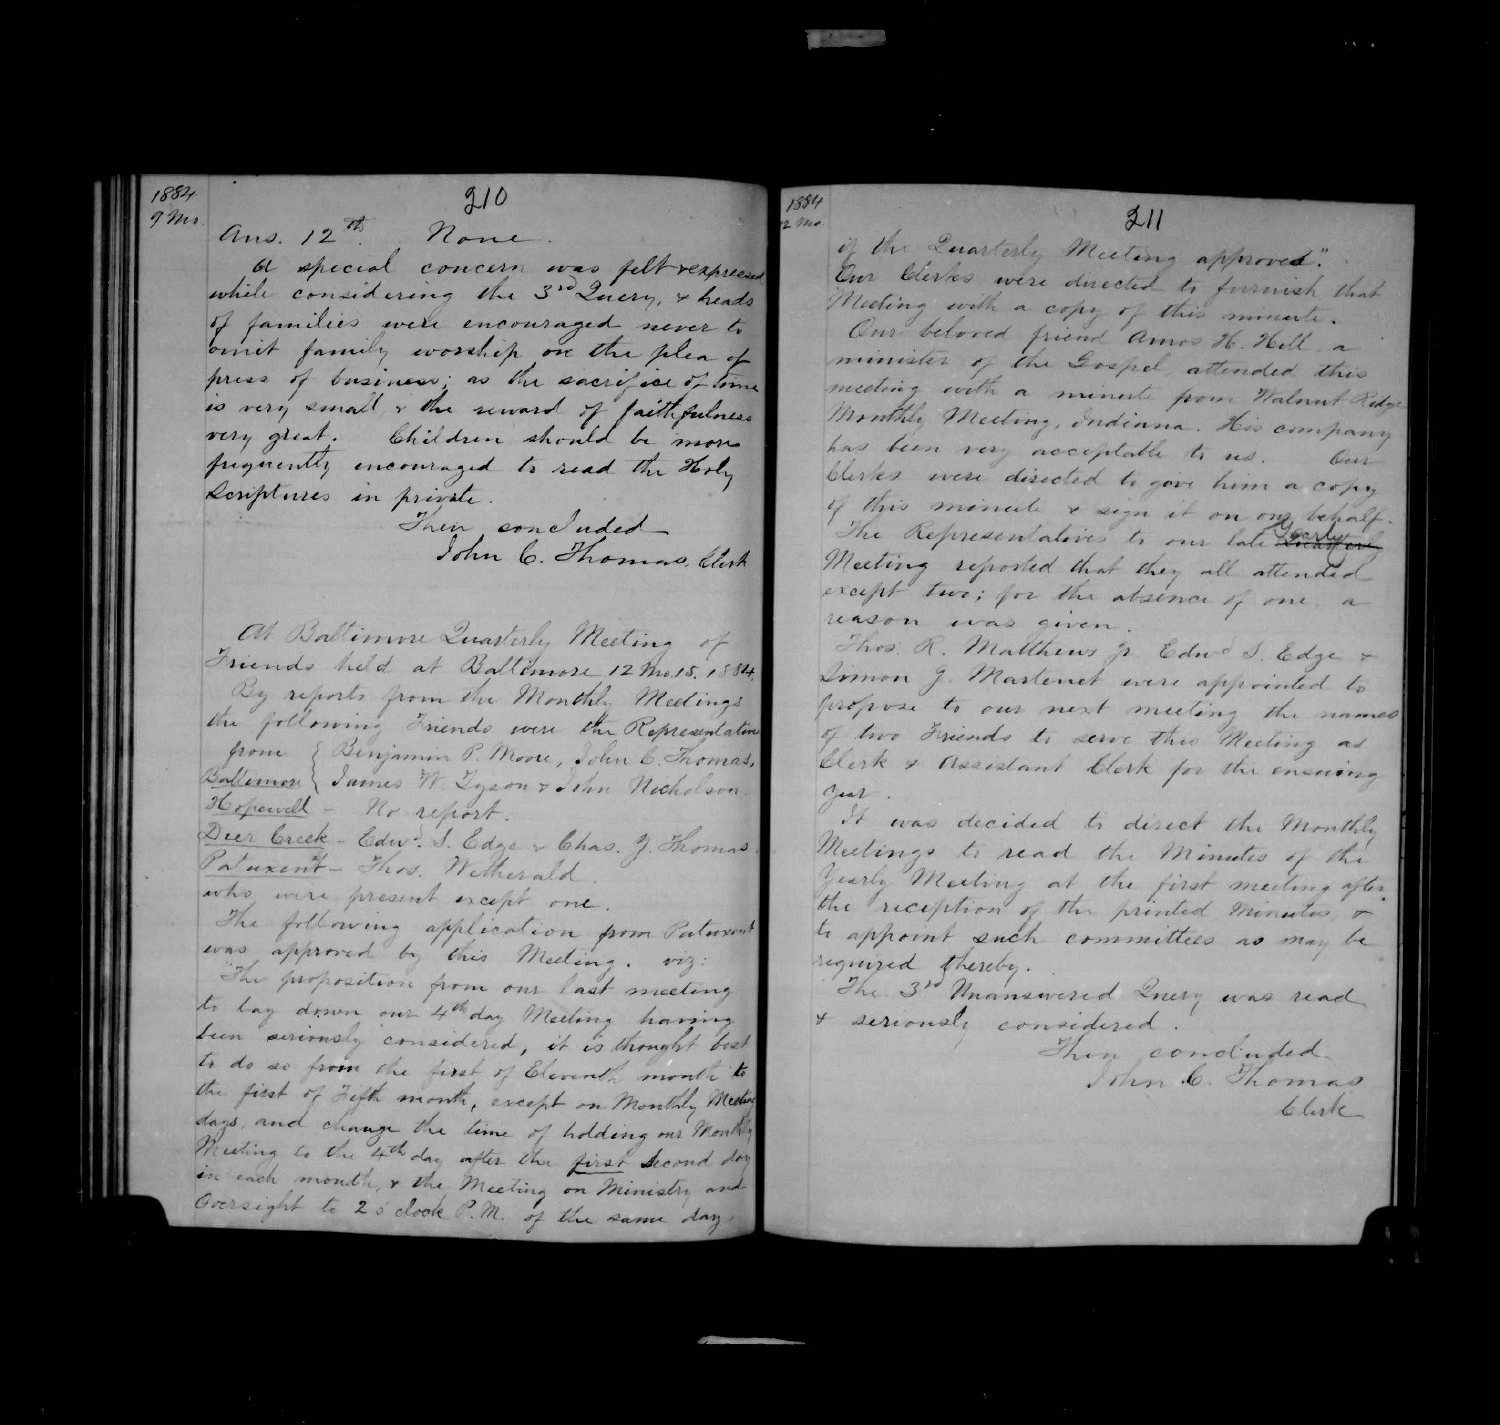 1884
9 Mo.
210
Ans. 12th. None.
A special concern was felt & expressed
while considering the 3rd Query, & heads
of families were encouraged never to
omit family worship on the plea of
press of business; as the sacrifice of time
is very small, & the reward of faithfulness
very great. Children should be more
frequently encouraged to read the Holy
Scriptures in private.
Then concluded
John C. Thomas, Clerk
At Baltimore Quarterly Meeting of
Friends held at Baltimore 12 Mo. 15. 1884.
By reports from the Monthly Meetings
the following Friends were the Representatives
from { Benjamin P. Moore, John C. Thomas,
Baltimore { James W. Tyson & John Nicholson.
Hopewell - No report.
Deer Creek - Edwd. S. Edge & Chas. Y. Thomas.
Patuxent - Thos. Wetherald.
who were present except one.
The following application from Patuxent
was approved by this Meeting. viz:
"The proposition from our last meeting
to lay down our 4th day Meeting having
been seriously considered, it is thought best
to do so from the first of Eleventh month to
the first of Fifth month, except on Monthly Meeting
days, and change the time of holding our Monthly
Meeting to the 4th day after the first Second day
in each month, & the Meeting on Ministry and
Oversight to 2 o'clock P.M. of the same day,
1884
12 Mo.
211
if the Quarterly Meeting approved."
Our Clerks were directed to furnish that
Meeting with a copy of this minute.
Our beloved friend Amos H. Hill, a
minister of the Gospel, attended this
meeting with a minute from Walnut Ridge
Monthly Meeting, Indiana. His company
has been very acceptable to us. Our
Clerks were directed to give him a copy
of this minute & sign it on our behalf.
The Representatives to our late Yearly Quarterly
Meeting reported that they all attended
except two; for the absence of one, a
reason was given.
Thos. R. Matthews Jr. Edwd. S. Edge &
Simon J. Martenet were appointed to
propose to our next meeting the names
of two Friends to serve this Meeting as
Clerk & Assistant Clerk for the ensuing
year.
It was decided to direct the Monthly
Meetings to read the Minutes of the
Yearly Meeting at the first meeting after
the reception of the printed Minutes, &
to appoint such committees as may be
required thereby.
The 3rd Unanswered Query was read
& seriously considered.
Then concluded
John C. Thomas
Clerk